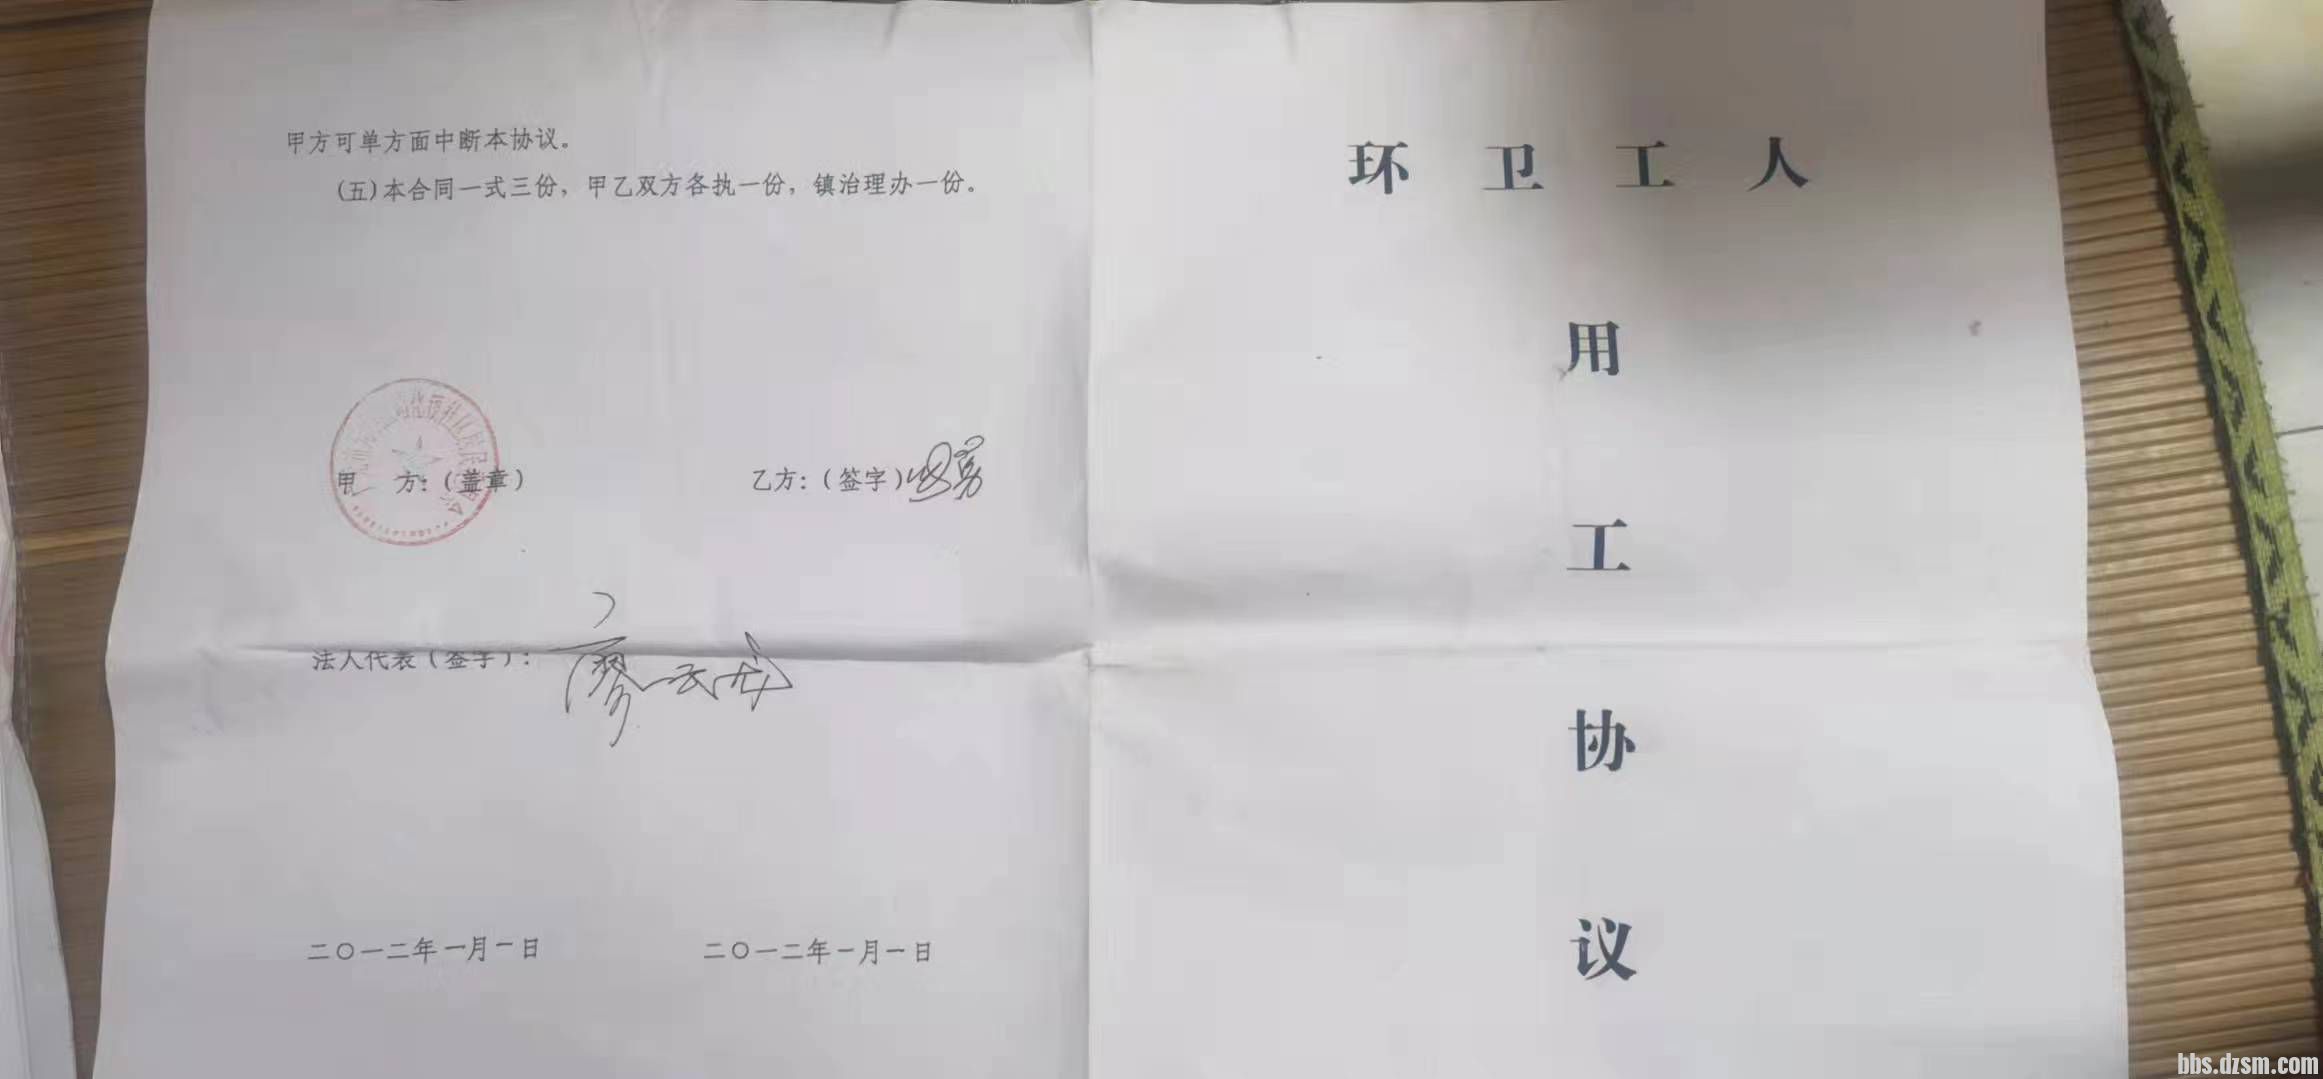 甲方可单方面中断本协议。
(五)本合同一式三份，甲乙双方各执一份，镇治理办一份。
甲 方:（盖章）
乙方:（签字）
法人代表（签字）:
廖云成
二〇一二年一月一日
二〇一二年一月一日
环 卫 工 人
用
工
协
议
bbs.dzsm.com